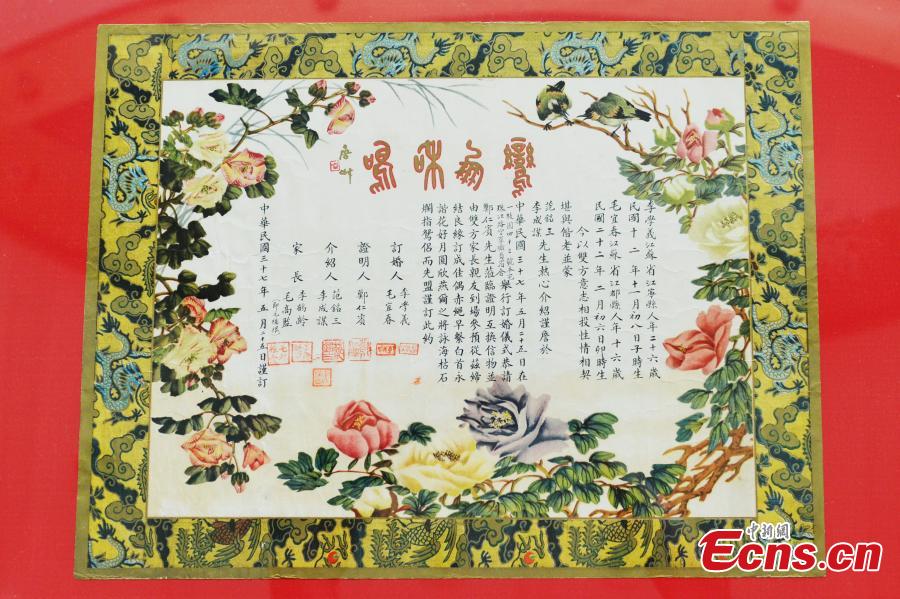 鸞鳳和鳴
李學義江蘇省江寧縣人年二十六歲
民國十二年十一月初八日子時生
毛宜春江蘇省江都縣人年十六歲
民國二十二年二月初六日卯時生
今以雙方意志相投性情相契
堪與偕老並蒙
范銘三
李成謀先生熱心介紹謹詹於
中華民國三十七年五月二十五日在
舉行訂婚儀式恭請
鄭仁賓先生蒞臨證明互換信物並
由雙方家長親友到場參預從茲締
結良緣訂成佳偶赤繩早繫白首永
諧花好月圓欣燕爾之將詠海枯石
爛指鴛侶而先盟謹訂此約
訂婚人 李學義
毛宜春
證明人 鄭仁賓
介紹人 范銘三
李成謀
家長 李鶴齡
毛高
中華民國三十七年五月二十五日謹訂
中新網
Ecns.cn